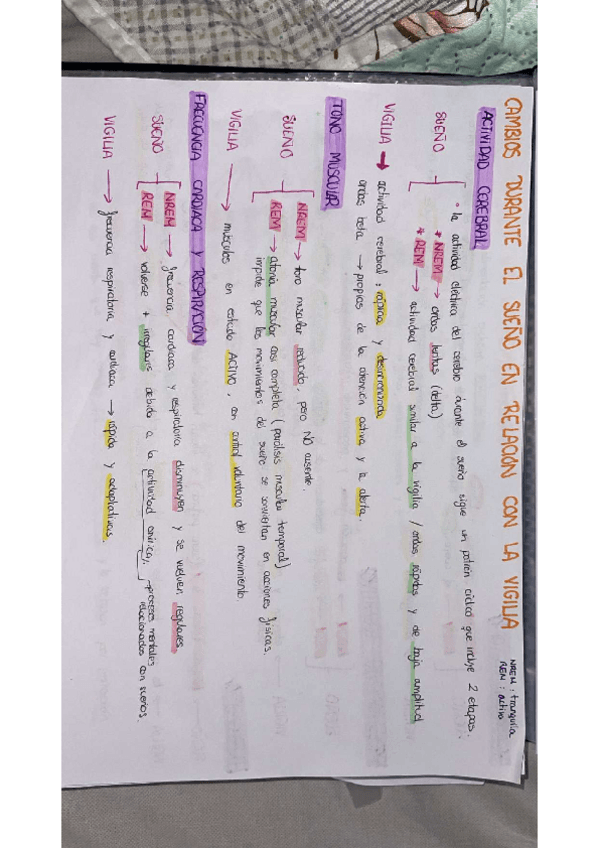 CAMBIOS DURANTE EL SUEÑO EN RELACIÓN CON LA VIGILIA
NREM: tranquila
REM: activo
ACTIVIDAD CEREBRAL
SUEÑO
* la actividad eléctrica del cerebro durante el sueño sigue un patrón cíclico que incluye 2 etapas.
* NREM → ondas lentas (delta)
* REM → actividad cerebral similar a la vigilia / ondas rápidas y de baja amplitud
VIGILIA → actividad cerebral: rápida y desincronizada
ondas beta → propias de la atención activa y la alerta.
TONO MUSCULAR
SUEÑO
NREM → tono muscular reducido, pero NO ausente.
REM → atonía muscular casi completa (parálisis muscular temporal)
impide que los movimientos del sueño se conviertan en acciones físicas.
VIGILIA → músculos en estado ACTIVO, con control voluntario del movimiento
FRECUENCIA CARDIACA Y RESPIRACIÓN
SUEÑO
NREM → frecuencia cardiaca y respiratoria disminuyen y se vuelven regulares.
REM → volverse + irregulares debido a la actividad onírica, → procesos mentales
relacionados con sueños.
VIGILIA → frecuencia respiratoria y cardiaca → rápida y adaptativas.